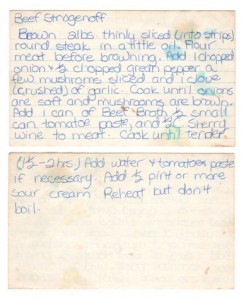 Beef Strogenoff
Brown 2lbs thinly sliced (into strips)
round steak in a little oil. Flour
meat before browning. Add 1 chopped
onion & ½ chopped green pepper a
few mushrooms sliced and 1 clove
(crushed) of garlic. Cook until onions
are soft and mushrooms are brown.
Add 1 can of Beef Broth, ½ small
can tomatoe paste, and ½C Sherry
wine to meat. Cook until tender.
(1½-2hrs.) Add water & tomatoe paste
if necessary. Add ½ pint or more
sour cream. Reheat but don't
boil.